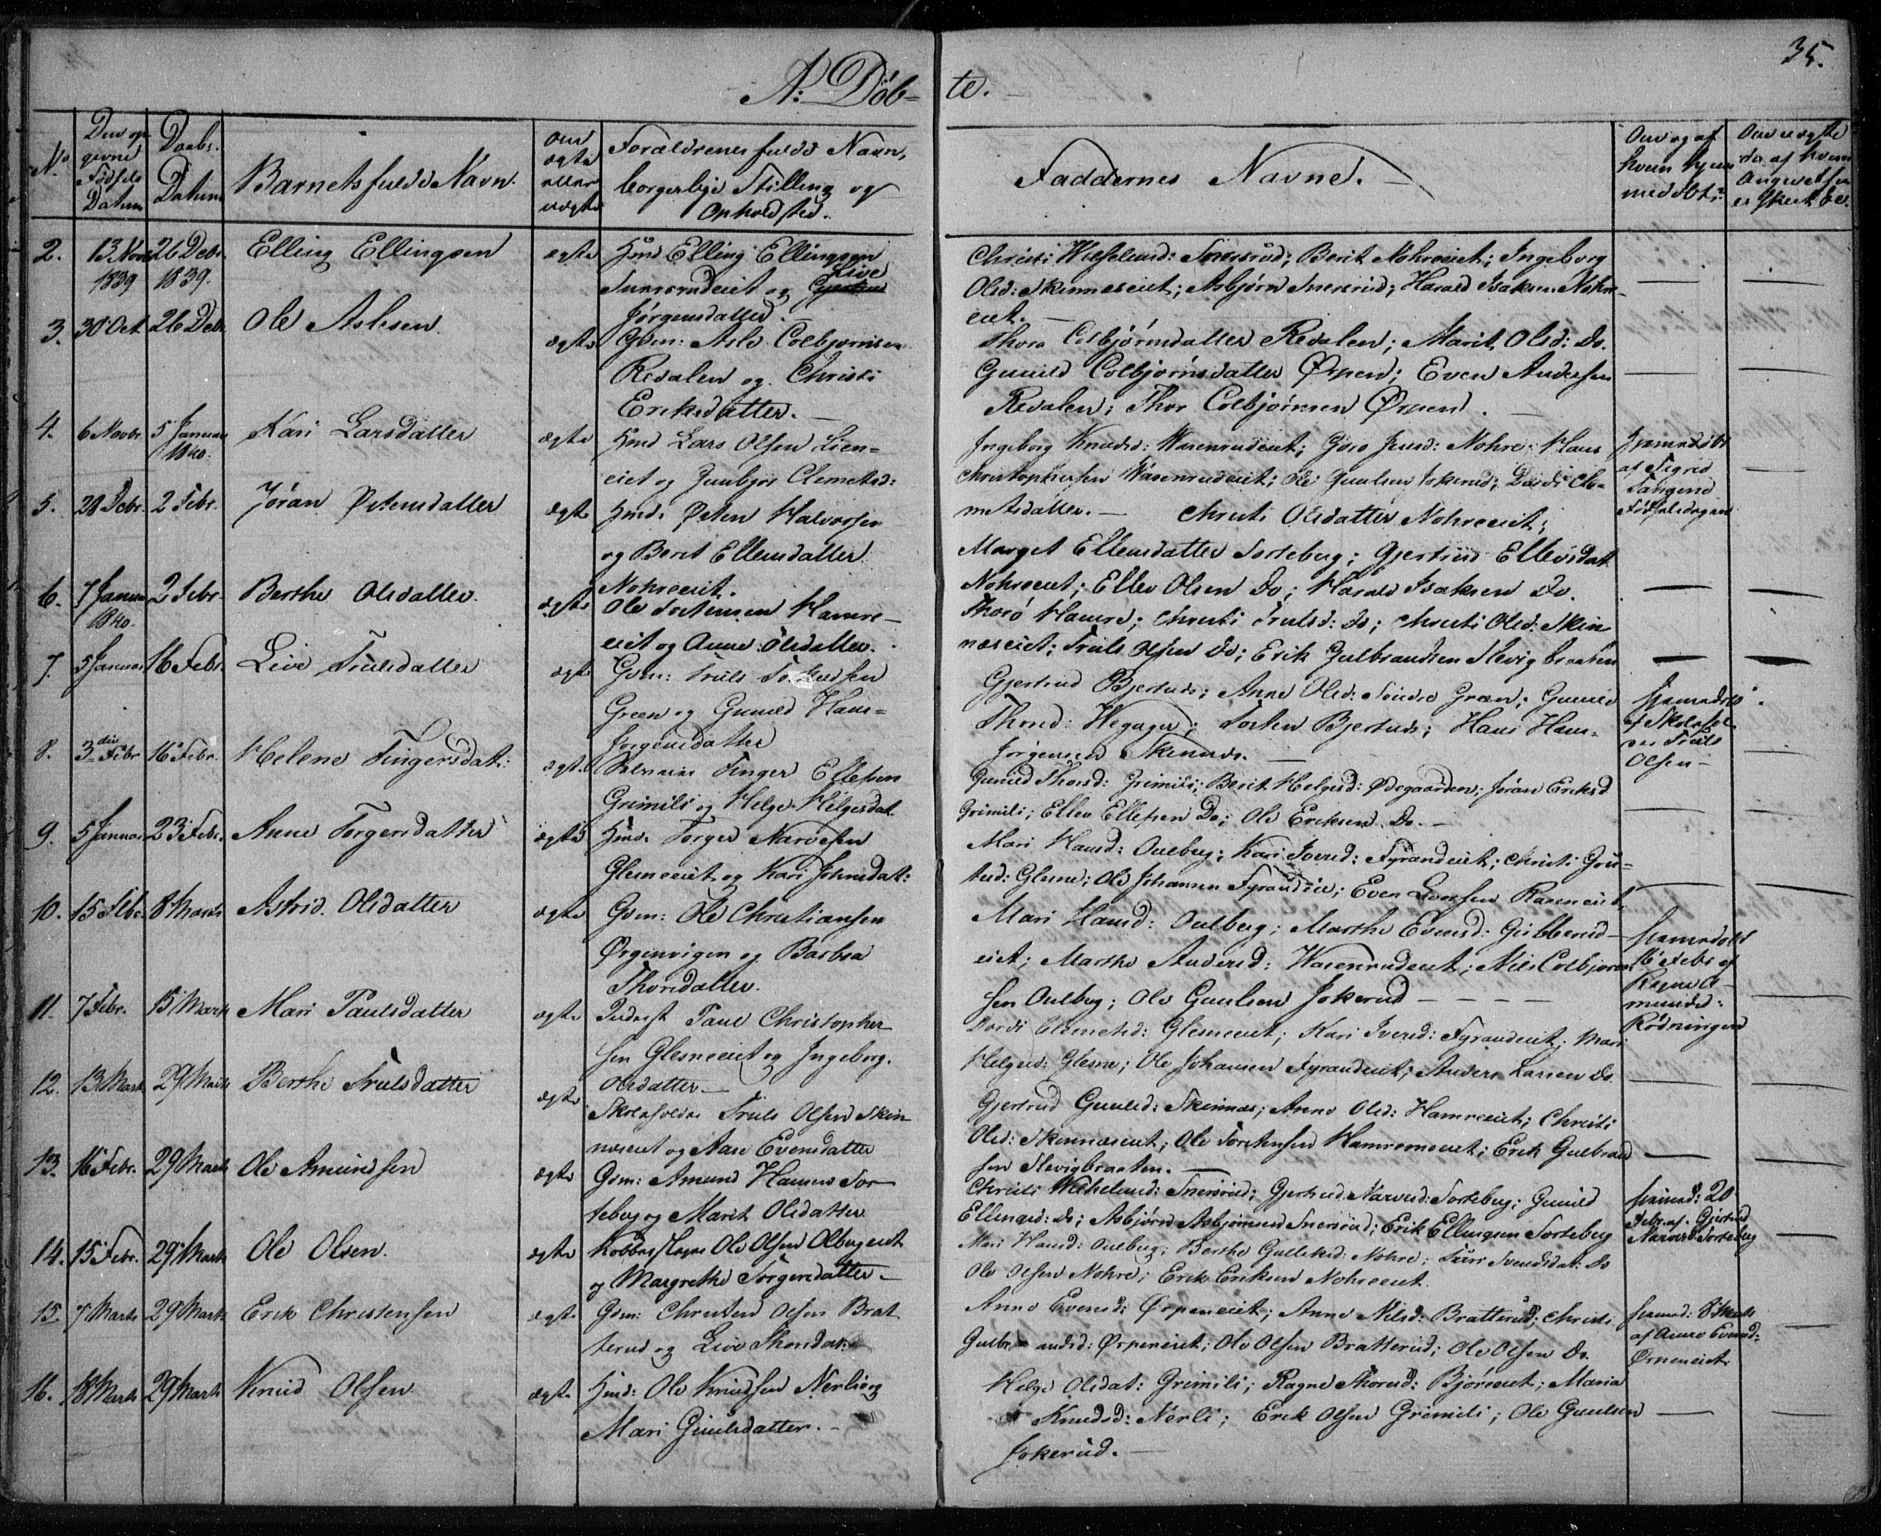 35.
A: Döb- te.
No.
Den opgivne Fødsels Datum
Daabs. Datum
Barnets fulde Navn.
Om ægte eller uægte
Forældrenes fulde Navn, borgerlige Stilling og Opholdsted.
Faddernes Navne.
Om og af hvem hjemmedøbt.
2. 13 Novbr 1839 26 Debr. 1839. Elling Ellingsen ægte Hmd Elling Ellingsen
Snersrudeiet og Gjertrud Live
Jørgensdatter.
Christi Wilhelmsd: Snersrud; Berit Nohreeiet; Ingeborg
Olsd: Skinneseiet; Asbjørn Snersrud; Harald Isaksen Nohre-
eiet. —
3. 30 Oct. 26 Debr Ole Aslesen. ægte Gdm: Asle Colbjørnsen
Redalen og Christi
Eriksdatter. —
Thora Colbjørnsdatter Redalen; Marit Olsd: Do.
Gunild Colbjørnsdatter Ørpen; Even Andersen
Redalen; Thor Colbjørnsen Ørpen. —
4. 6 Novbr. 5 Januar 1840. Kari Larsdatter ægte Hmd Lars Olsen Lien-
eiet og Gunbjør Clemetsd:
Ingeborg Knudsd: Wasenrudeiet; Goro Jensd: Nohre; Hans
Christophersen Wasenrudeiet; Ole Guulsen Jokerud; Dordi Cle-
metsdatter. —
hjemmedøbt af Sigrid Tangend Fødselsdagen
5. 20 Debr. 2 Febr. Jøran Østensdatter ægte Hmd: Østen Halvorsen
og Berit Ellensdatter
Nohreeiet.
Christi Olsdatter Nohreeiet;
Marget Ellensdatter Sorteberg; Gjertrud Ellevsdat.
Nohreeiet; Ellev Olsen Do; Harald Isaksen Do.
6. 7 Januar 1840. 2 Febr. Berthe Olsdatter. ægte Ole Torstensen Hamre-
eiet og Anne Olsdatter.
Thoro Hamre; Christi Trulsd: Do; Christi Olsd: Skin-
neseiet; Truls Olsen Do; Erik Gulbrandsen Slevigbraaten
7. 5 Januar 16 Febr. Live Trulsdatter ægte Gdm: Truls
Green og Gunild Hans-
Jørgensdatter
Gjertrud Bjertnæs; Anne Olsd: Søndre Green; Gunild
Thord: Hegagen; Torsten Bjertnæs; Hans Hans-
Jørgensen Skinnæs. —
hjemmedøbt af Skolehol. Truls Olsen—
8. 3 die Febr 16 Febr. Helene Fingersdat: ægte Finger Ellefsen
Grimeli og Helge Helgesdat.
Gunild Thorsd: Grimeli; Berit Helgesd: Ødegaarden; Jøran Eriksd
Grimeli; Ellev Ellefsen Do; Ole Eriksen Do. —
9. 5 Januar 23 Febr. Anne Torgersdatter ægte Hmd: Torger Narvesen
Glesneeiet og Kari Johnsdat:
Mari Hansd: Oulberg; Kari Iversd: Fyrandeiet; Christi
Glesne; Ole Johansen Fyrandeie; Even Evensen
10. 15 Febr. 8 Marts Astrid Olsdatter ægte Gdm: Ole Christiansen
Ørgenvigen og Barbra
Thorsdatter.
Mari Hansd: Oulberg; Marthe Evensd: Gubberud-
eiet; Marthe Andersd: Wasenrudeiet; Niels Colbjørn-
sen Oulberg; Ole Guulsen Jokerud — — — —
hjemmedøbt 16 Febr af Ragne Amundsd: Rødningend
11. 7 Febr. 15 Marts Mari Paulsdatter ægte Inderst Paul Christopher-
sen Glesneeiet og Ingeborg
Olsdatter —
Dordi Clemetsd: Glesneeiet; Kari Iversd: Fyrandeiet; Mari
Helgesd: Glesne; Ole Johansen Fyrandeiet; Anders Larsen Do
12. 13 Mart 29 Marts Berthe Trulsdatter ægte Skoleholder Truls Olsen Skin-
neseiet og Aase Evensdatter
Gjertrud Guulsd: Skinnæs; Anne Olsd: Hamreeiet; Christi
Olsd: Skinneseiet; Ole Torstensen Hamreeiet; Erik Gulbrand
sen Slevigbraaten. —
13. 16 Febr. 29 Marts Ole Amundsen ægte Gdm: Amund Hansen Sor-
teberg og Marit Olsdatter
Christi Wilhelmsd: Snersrud; Gjertrud Narvesd: Sorteberg; Gunild
Ellingsd: Do; Asbjørn Asbjørnsen Snersrud; Erik Ellingsen Sorteberg
hjemmd: 20 Febr. af Gjertrud Narvesd: Sorteberg
14. 15 Febr. 29 Marts Ole Olsen. ægte Kobberslager Ole Olsen Olbergeiet
og Margrethe Torgersdatter—
Mari Hansd: Oulberg; Berthe Gulliksd: Nohre; Turi Svendsdat: Do
Ole Olsen Nohre; Erik Eriksen Nohreeiet.
15. 7 Marts 29 Marts Erik Christensen ægte Gdm: Christen Olsen Brat-
terud og Live Thordat:
Anne Evensd: Ørpeneiet; Anne Nilsd: Bratterud; Christi
Gulbrandsd: Ørpeneiet; Ole Olsen Bratterud; Ole Olsen Do.
hjemmd: 8 Marts af Anne Evensd: Ørpeneiet
16. 18 Marts 29 Marts Knud Olsen ægte Hmd: Ole Knudsen Nerli og
Mari Guulsdatter. —
Helge Olsdat: Grimeli; Ragne Thorsd: Bjøreeiet; Maria
Knudsd: Nerli; Erik Olsen Grimeli; Ole Guulsen
Jokerud. —